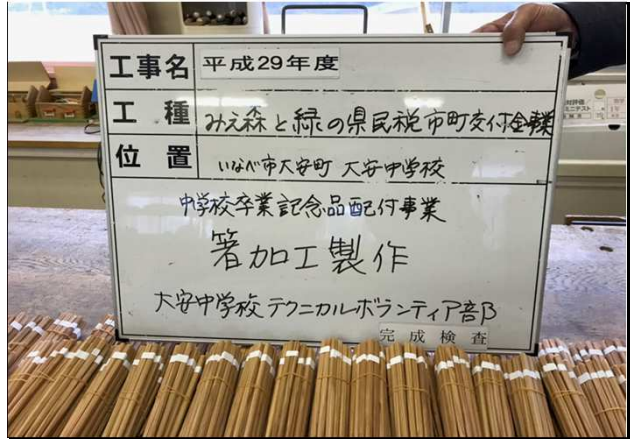 工事名 平成29年度
工種 みえ森と緑の県民税市町交付金事業
位置 いなべ市大安町 大安中学校
中学校卒業記念品配付事業
箸加工製作
大安中学校テクニカルボランティア部
完成検査